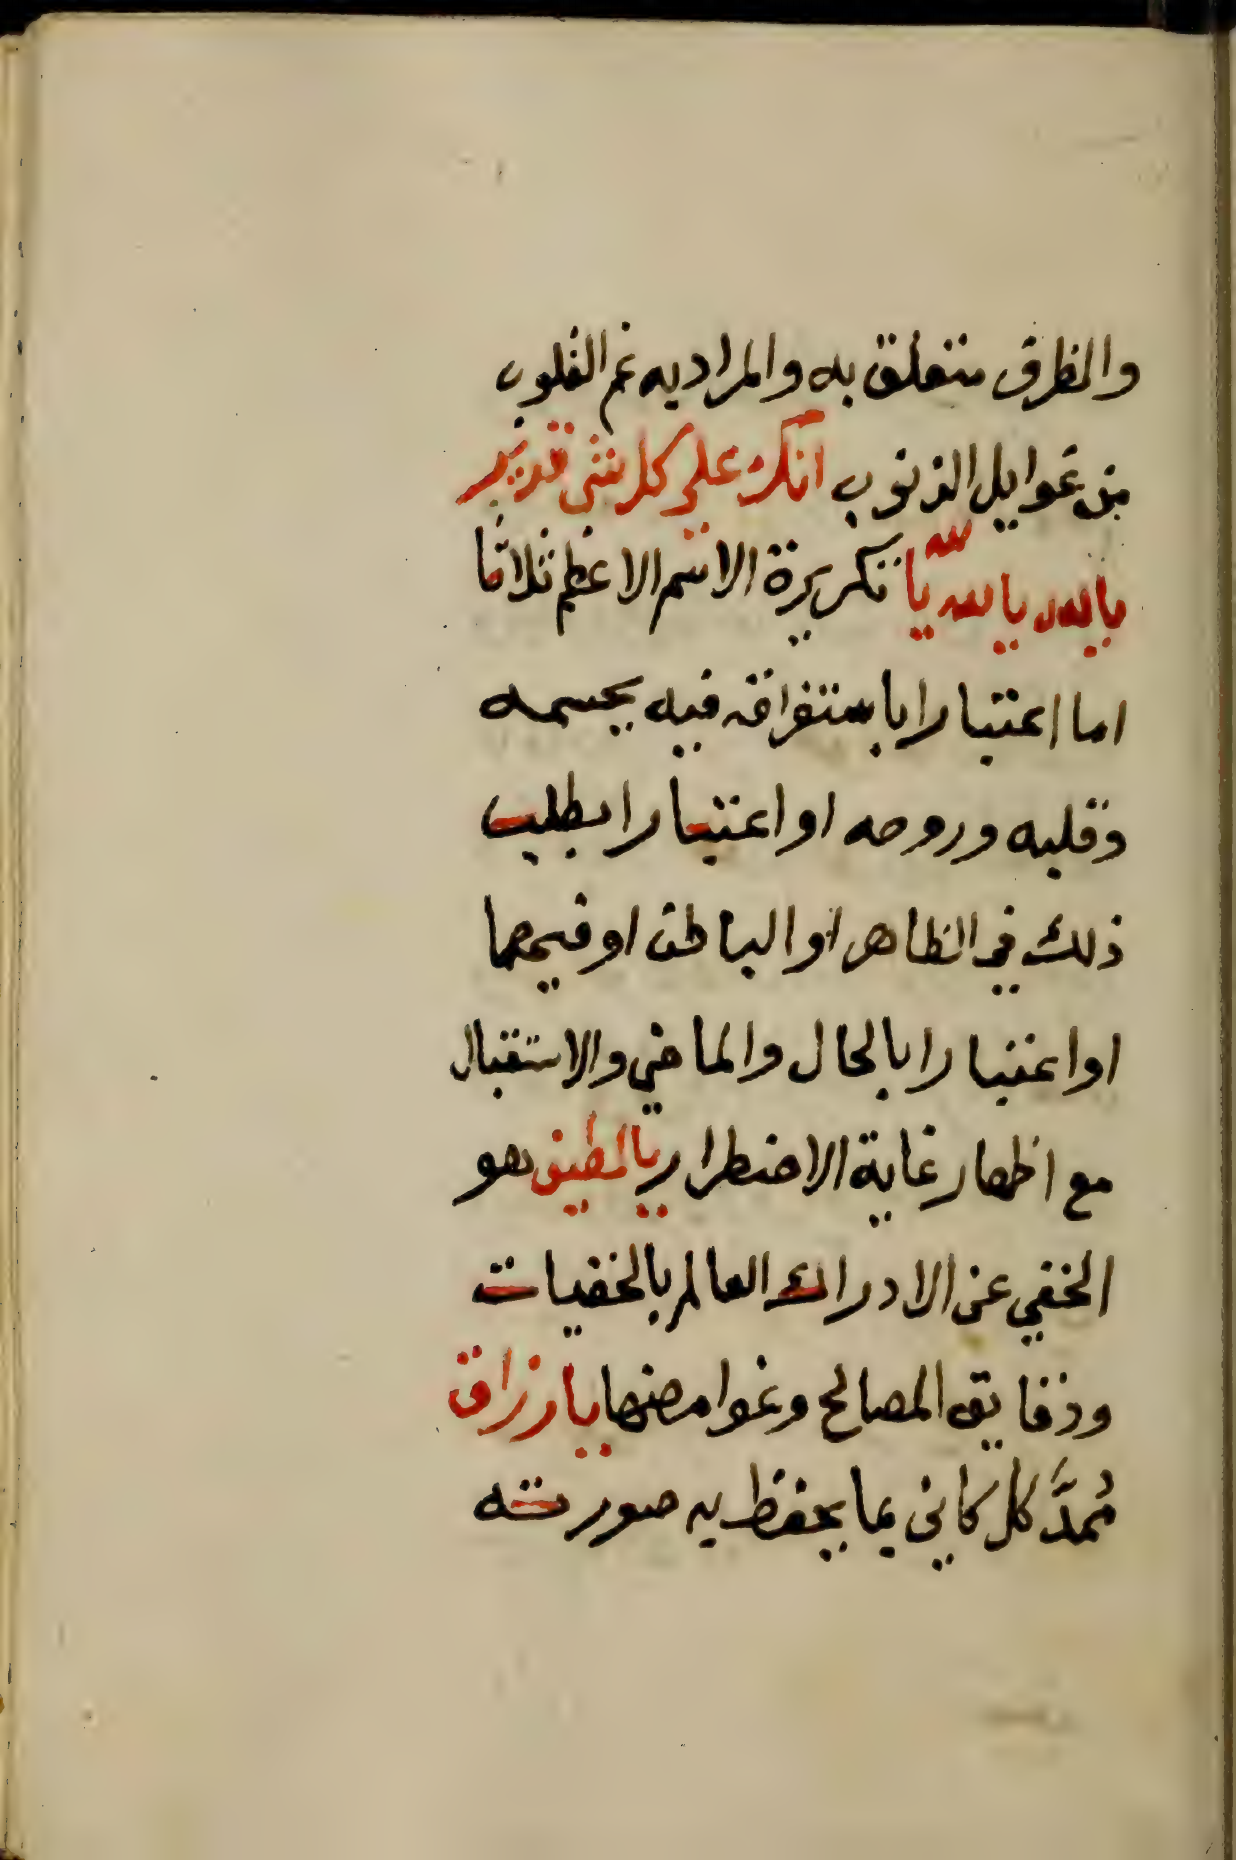 والظرف متعلق به والمراد به غم القلوب
من غوايل الذنوب انك على كل شئ قدير
يالله يالله يا لله تكريرة الاسم الاعظم ثلاثا
اما اعتبارا باستغراقه فيه بجسمه
وقلبه وروحه او اعتبارا بطلب
ذلك في الظاهر او الباطن او فيهما
او اعتبارا بالحال والماضي والاستقبال
مع اظهار غاية الاضطرار يالطيف هو
الخفي عن الادراك العالم بالخفيات
ودقايق المصالح وغوامضها يارزاق
مُمدَّ كل كاين بما يحفظ به صورته